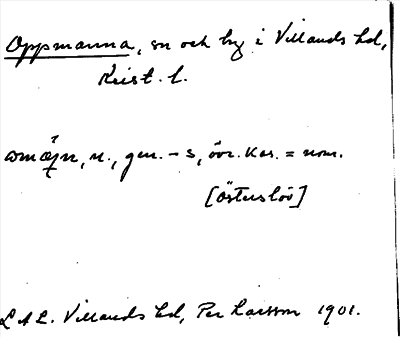 Oppmanna, sn och by i Villands hd,
Krist. l.
n., gen. - s, övr. kas. = nom.
[Österslöv]
L A L. Villands hd, Per Larsson 1901.